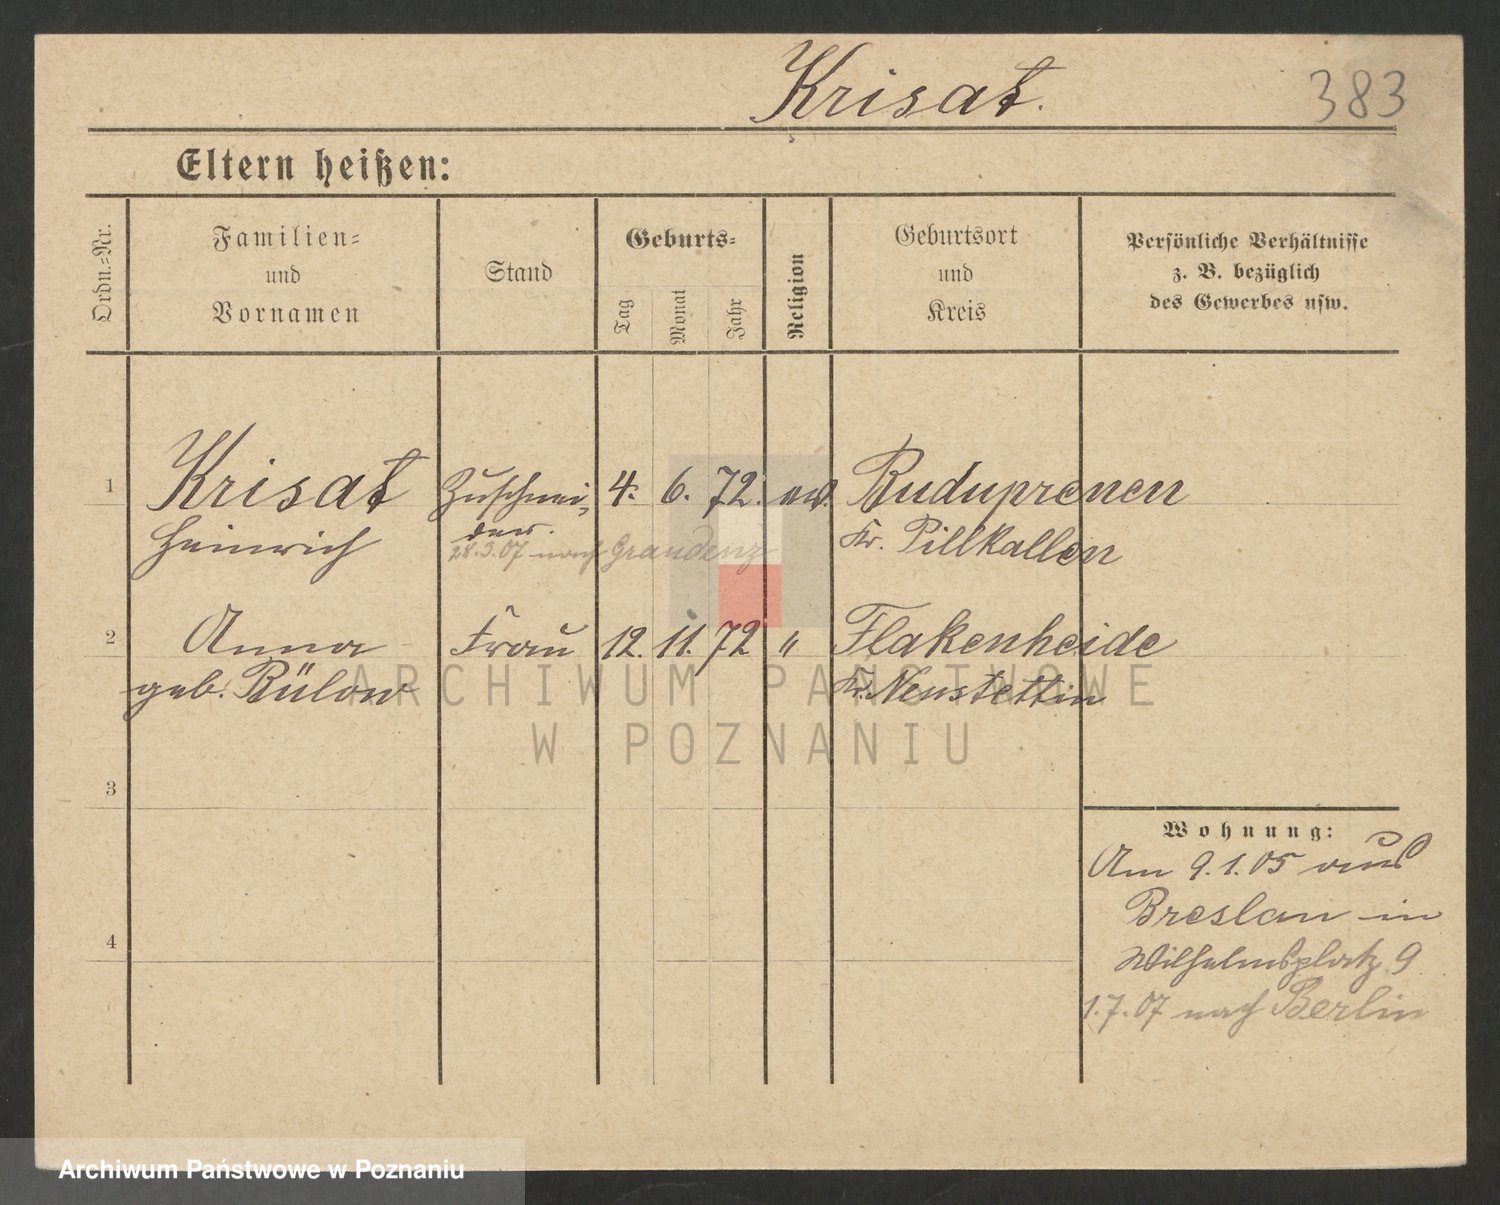 Krisat.
383
Eltern heißen:
Ordn.-Nr.
Familien-
und
Vornamen
Stand
Geburts-
Tag
Monat
Jahr
Religion
Geburtsort
und
Kreis
Persönliche Verhältnisse
z. B. bezüglich
des Gewerbes usw.
1 Krisat Zuschnei- 4. 6. 72. ev. Ruduprenen
Heinrich der. Kr. Pillkallen
28.3.07 nach Graudenz
2 Anna Frau 12. 11. 72 " Flakenheide
geb. Bülow Kr. Neustettin
ARCHIWUM PAŃSTWOWE
W POZNANIU
3
4
Wohnung:
Am 9.1.05 aus
Breslau in
Wilhelmsplatz 9
1.7.07 nach Berlin
Archiwum Państwowe w Poznaniu